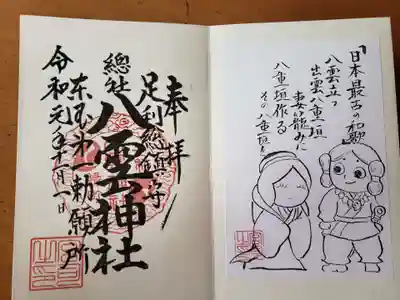 「日本最古の和歌」
八雲立つ
出雲八重垣
妻籠みに
八重垣作る
その八重垣を
奉拝
足利総鎮守
總社
八雲神社
東国第一勅願所
令和元年十一月一日